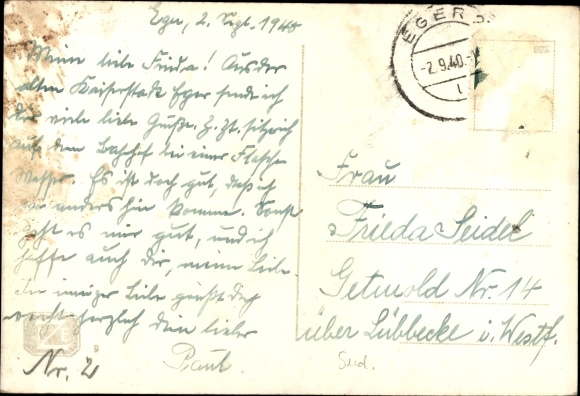 Eger, 2. Sept. 1940
Meine liebe Frieda! Aus der
alten Kaiserstadt Eger sende ich
dir viele liebe Grüße. Z. Zt. sitze ich
auf dem Bahnhof bei einer Flasche
Wasser. Es ist doch gut, daß ich
anders hin komme. Sonst
geht es mir gut, und ich
hoffe auch dir, meine Liebe
In inniger Liebe grüßt dich
recht herzlich dein lieber
Paul.
Nr. 2
EGER
-2.9.40.-
Frau
Frieda Seidel
Getmold Nr. 14
über Lübbecke i. Westf.
Sud.